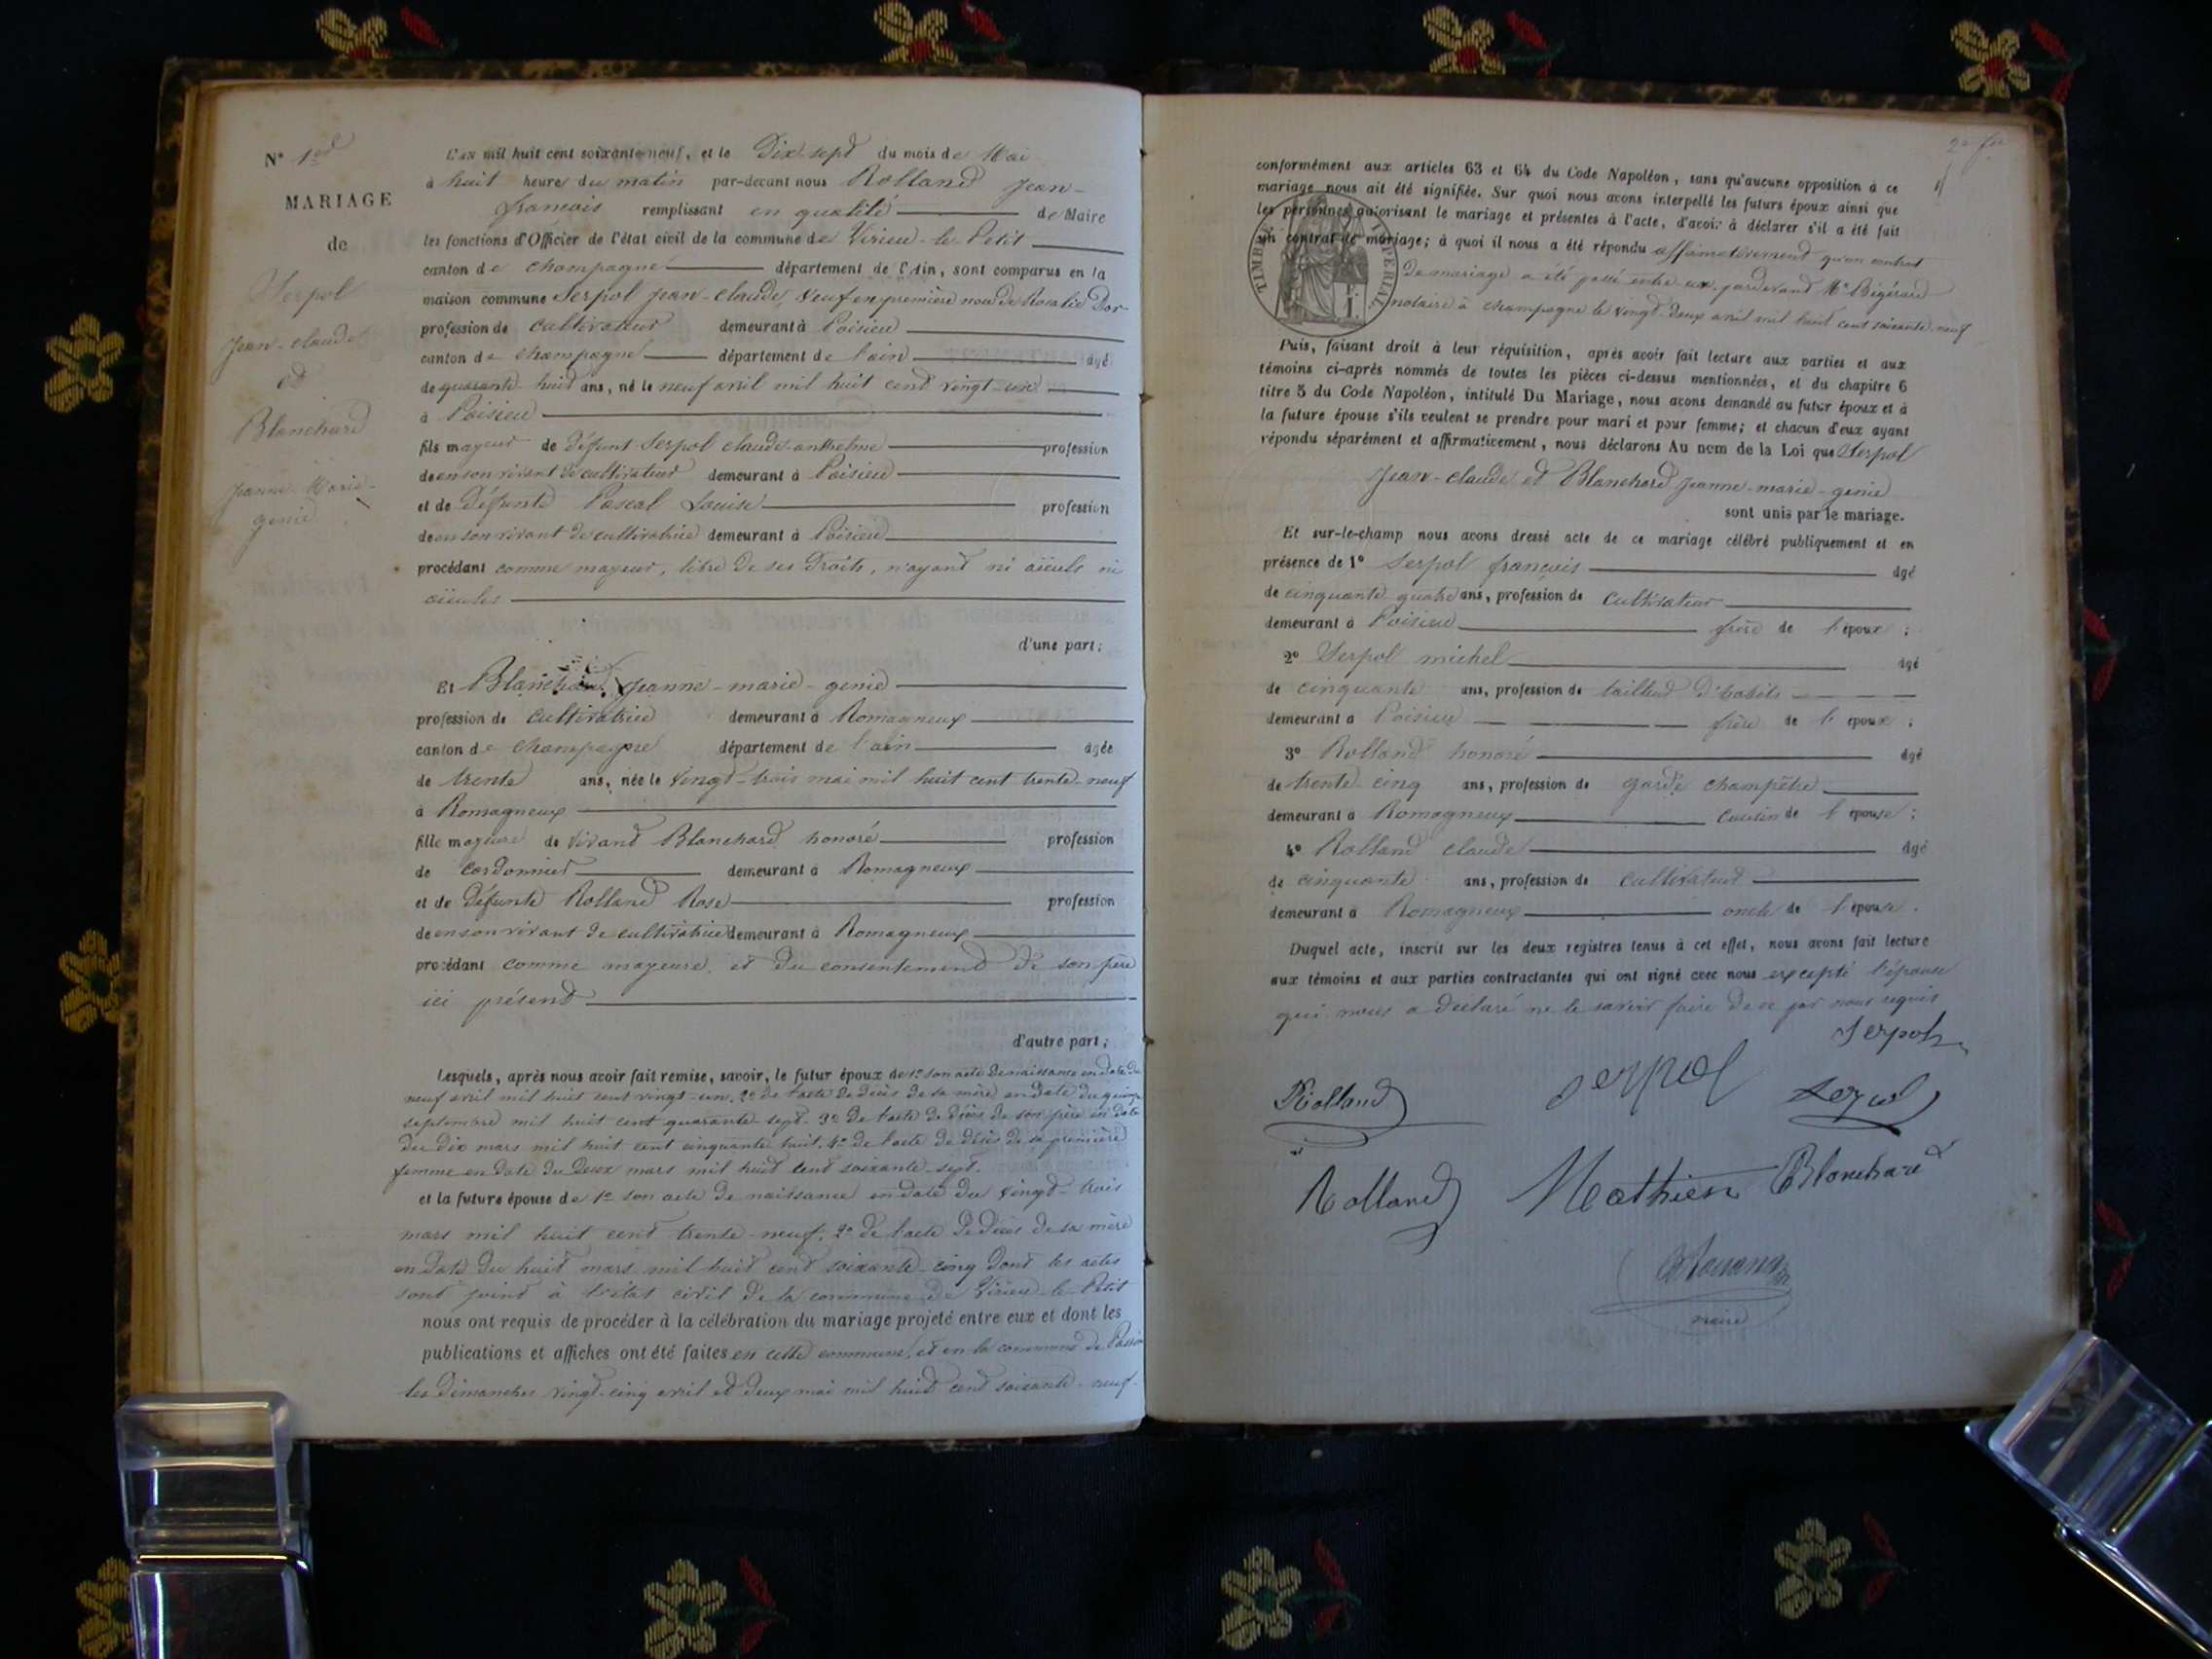 N° 1er
MARIAGE
de
Serpol
Jean-claude
et
Blanchard
Jeanne-Marie-
genie
L'an mil huit cent soixante-neuf, et le Dix sept du mois de Mai
à huit heure du matin par-devant nous Rolland Jean-
francois remplissant en qualité de Maire
les fonctions d'Officier de l'état civil de la commune de Virieu-le-Petit
canton de champagne département de l'Ain, sont comparus en la
maison commune Serpol Jean-claude Veuf en première noce de Rosalie Dor-
profession de cultivateur demeurant à Poisieu
canton de champagne département de l'ain âgé
de quarante-huit ans, né le neuf avril mil huit cent vingt-un
à Poisieu
fils mayeur de défunt Serpol claude-anthelme profession
de en son vivant de cultivateur demeurant à Poisieu
et de Défunte Pascal Louise profession
de en son vivant de cultivatrice demeurant à Poisieu
procédant comme mayeur, libre de ses droits, n'ayant ni aïeuls ni
aïeules
d'une part;
Et Blanchard Jeanne-marie-genie
profession de cultivatrice demeurant à Romagneux
canton de champagne département de l'ain âgée
de trente ans, née le Vingt-trois mai mil huit cent trente-neuf
à Romagneux
fille mayeure de vivant Blanchard honoré profession
de cordonnier demeurant à Romagneux
et de défunte Rolland Rose profession
de en son vivant de cultivatrice demeurant à Romagneux
procédant comme mayeure, et du consentement de son père
ici présent
d'autre part;
Lesquels, après nous avoir fait remise, savoir, le futur époux de 1° son acte de naissance en date du
neuf avril mil huit cent vingt-un. 2° de l'acte de décès de sa mère en date du quinze
septembre mil huit cent quarante-sept. 3° de l'acte de décès de son père en date
du dix mars mil huit cent cinquante huit. 4° de l'acte de décès de sa première
femme en date du deux mars mil huit cent soixante-sept.
et la future épouse de 1° son acte de naissance en date du vingt-trois
mars mil huit cent trente-neuf. 2° de l'acte de décès de sa mère
en date du huit mars mil huit cent soixante-cinq dont les actes
sont joint à l'état civil de la commune de Virieu-le-Petit
nous ont requis de procéder à la célébration du mariage projeté entre eux et dont les
publications et affiches ont été faites en cette commune, et en la commune de
les dimanches vingt-cinq avril et deux mai mil huit cent soixante-neuf.
conformément aux articles 63 et 64 du Code Napoléon, sans qu'aucune opposition à ce
mariage nous ait été signifiée. Sur quoi nous avons interpellé les futurs époux ainsi que
les personnes autorisant le mariage et présentes à l'acte, d'avoir à déclarer s'il a été fait
un contrat de mariage; à quoi il nous a été répondu affirmativement qu'un contrat
de mariage a été passé entre eux pardevant Me
notaire à champagne le vingt-deux avril mil huit cent soixante-neuf
TIMBRE IMPERIAL
Puis, faisant droit à leur réquisition, après avoir fait lecture aux parties et aux
témoins ci-après nommés de toutes les pièces ci-dessus mentionnées, et du chapitre 6
titre 5 du Code Napoléon, intitulé Du Mariage, nous avons demandé au futur époux et à
la future épouse s'ils veulent se prendre pour mari et pour femme; et chacun d'eux ayant
répondu séparément et affirmativement, nous déclarons Au nom de la Loi que Serpol
Jean-claude et Blanchard Jeanne-marie-genie
sont unis par le mariage.
Et sur-le-champ nous avons dressé acte de ce mariage célébré publiquement et en
présence de 1° Serpol françois âgé
de cinquante-quatre ans, profession de cultivateur
demeurant à Poisieu frère de l'époux;
2° Serpol michel âgé
de cinquante ans, profession de tailleur d'habits
demeurant à Poisieu frère de l'époux;
3° Rolland honoré âgé
de trente-cinq ans, profession de garde champêtre
demeurant à Romagneux cousin de l'épouse;
4° Rolland claude âgé
de cinquante ans, profession de cultivateur
demeurant à Romagneux oncle de l'épouse.
Duquel acte, inscrit sur les deux registres tenus à cet effet, nous avons fait lecture
aux témoins et aux parties contractantes qui ont signé avec nous excepté l'épouse
qui nous a déclaré ne le savoir faire de ce par nous requis
Serpol
Rolland Serpol Serpol
Rolland Mathieu Blanchard
maire